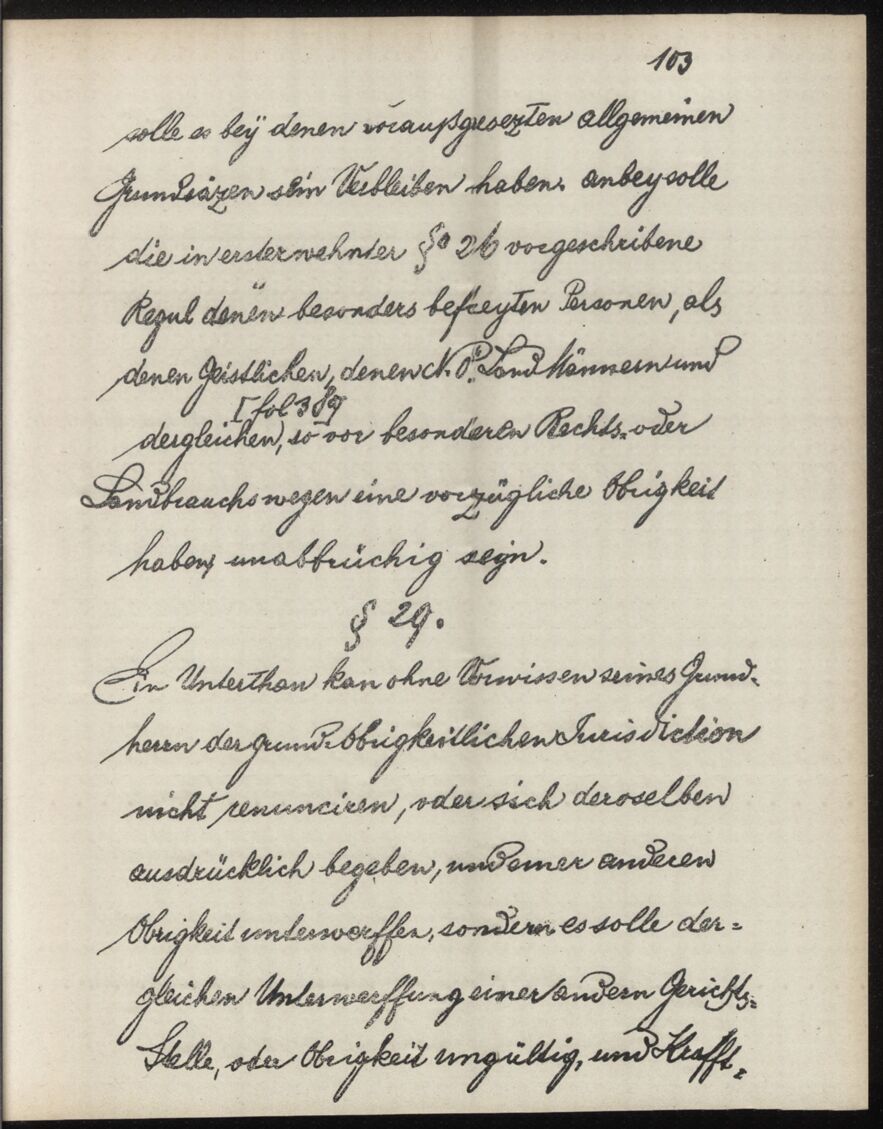 103
solle es beÿ denen voraußgesezten allgemeinen
Grundsäzen sein Verbleiben haben. anbey solle
die in ersterwehnter §º 26 vorgeschribene
Regul denen besonders befreyten Personen, als
denen Geistlichen, denen N. Ö. Land Männern und
[fol 38]
dergleichen, so vor besonderen Rechts- oder
Landbrauchs wegen eine vorzügliche Obrigkeit
haben, unabbrüchig seyn.
§ 29.
Ein Unterthan kan ohne Vorwissen seines Grund-
herrn der grund-Obrigkeitlichen Jurisdiction
nicht renunciren, oder sich deroselben
ausdrücklich begeben, und einer anderen
Obrigkeit unterwerffen, sondern es solle der=
gleichen Unterwerffung einer andern Gerichts=
Stelle, oder Obrigkeit ungültig, und Krafft=